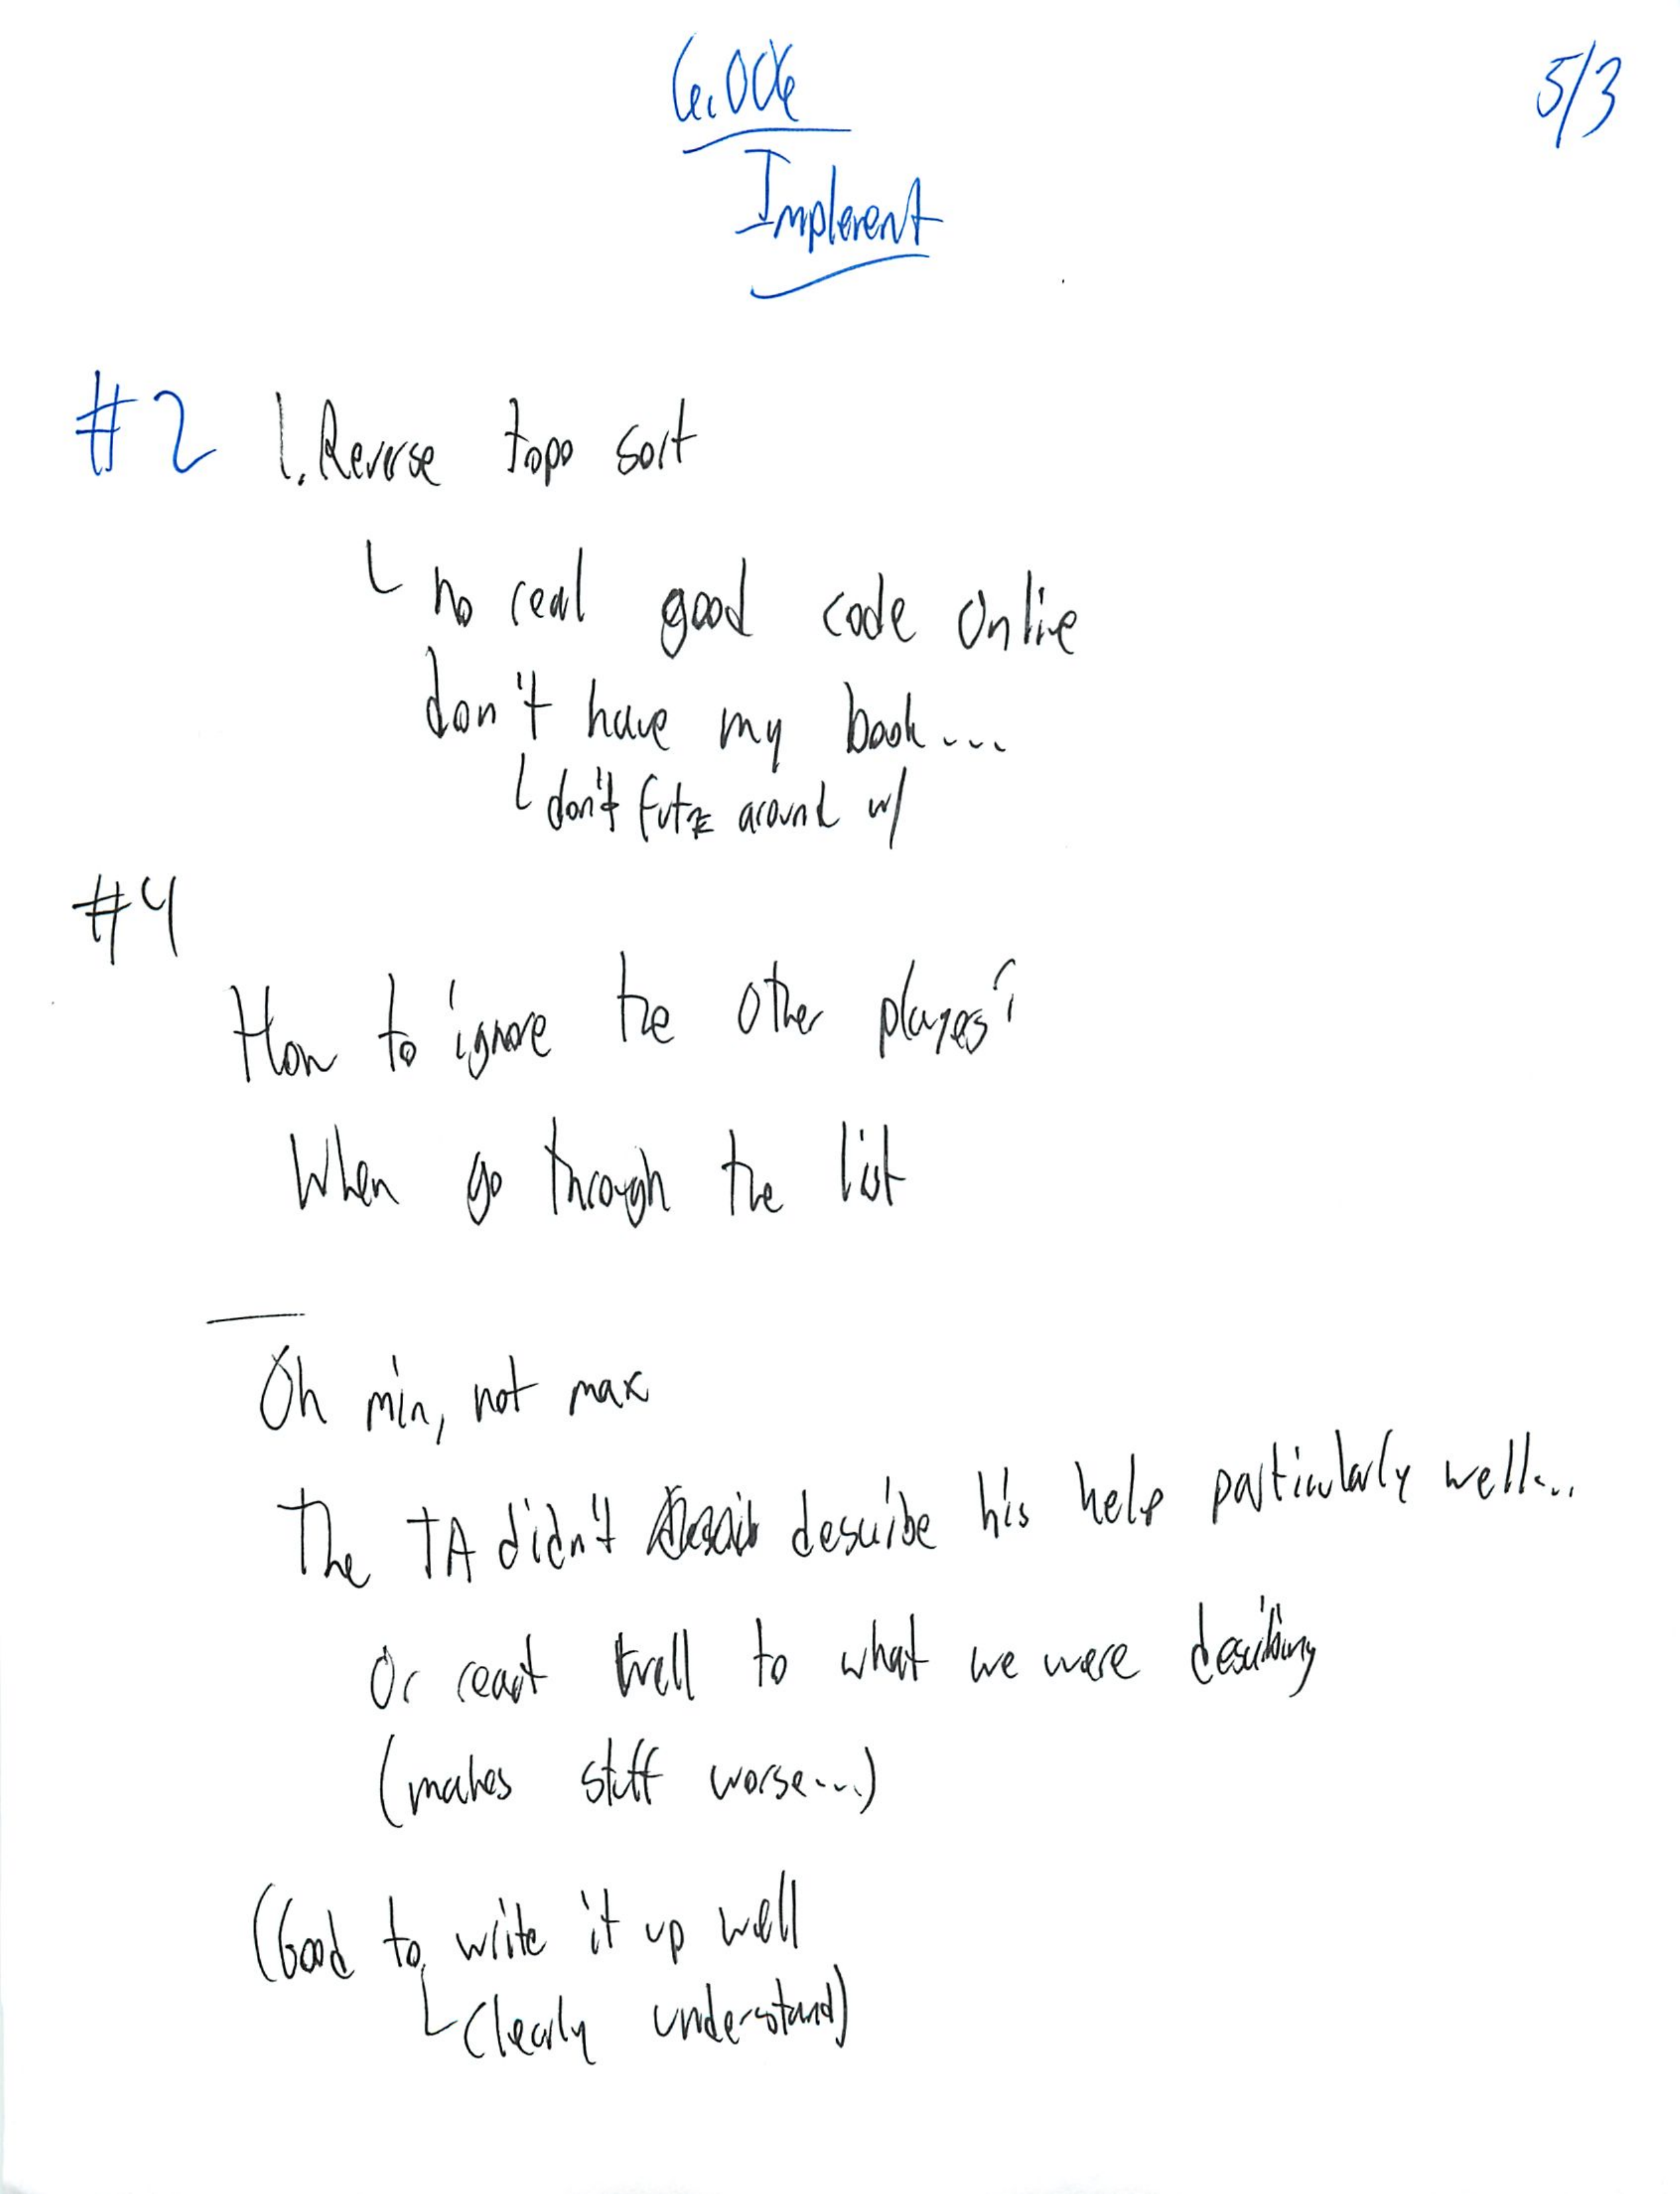 6.006
5/3
Implement
#2 1. Reverse topo sort
no real good code online
don't have my book...
don't futz around w/
#4
How to ignore the other players?
When go through the list
Oh min, not max
The TA didn't describe his help particularly well...
Or react well to what we were describing
(makes stuff worse...)
(Good to write it up well
Clearly understand)